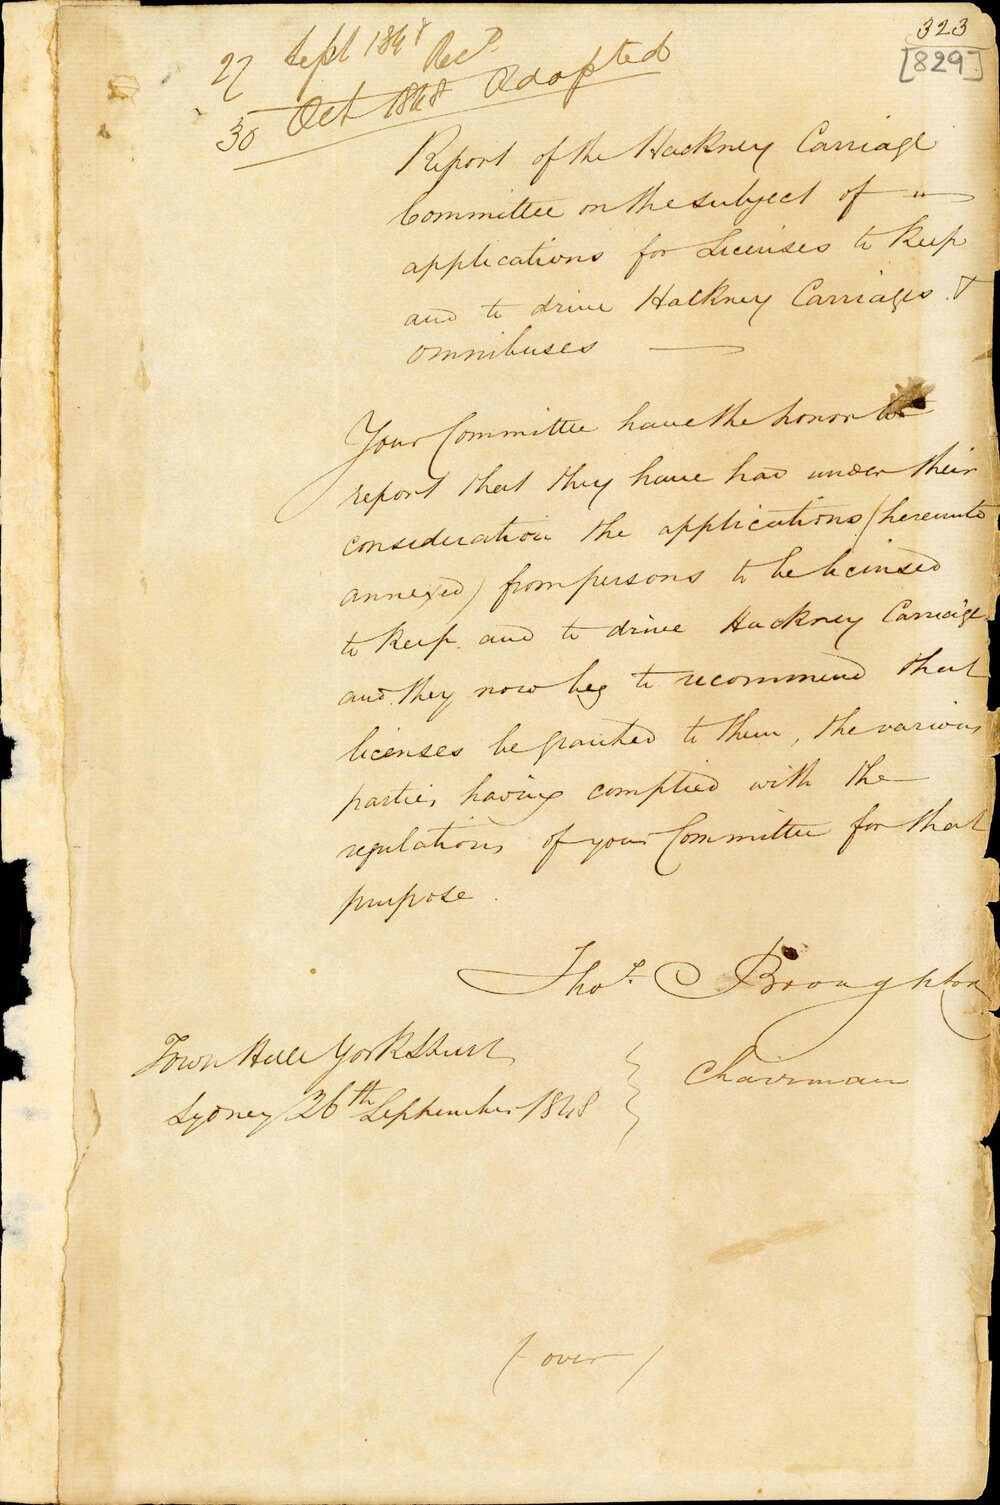 323
[829]
27 Sept 1848 Recd.
30 Oct 1848 Adopted
Report of the Hackney Carriage
Committee on the subject of
applications for Licenses to keep
and to drive Hackney Carriages &
omnibuses
Your Committee have the honor to
report that they have had under their
consideration the applications (hereunto
annexed) from persons to be licensed
to keep and to drive Hackney Carriages
and they now beg to recommend that
licenses be granted to them, the various
parties having complied with the
regulations of your Committee for that
purpose.
Thos. Broughton
Chairman
Town Hall York Street
Sydney 26th September 1848
(over)